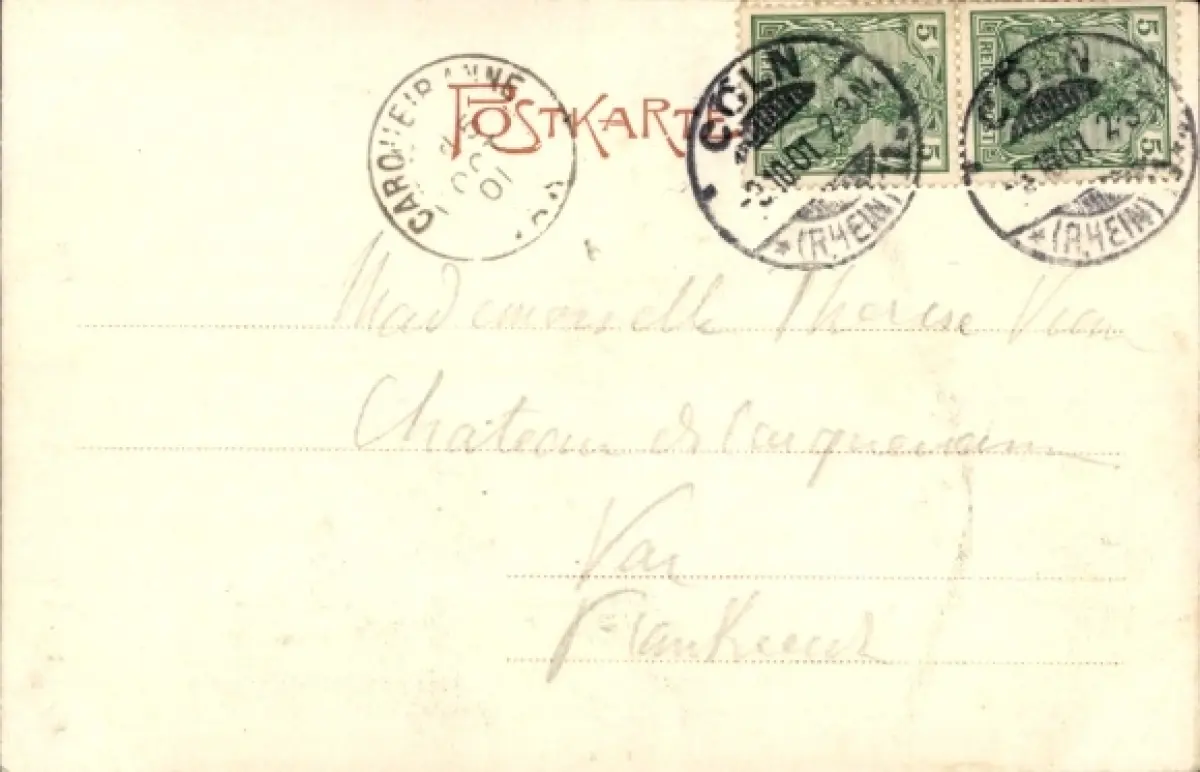 POSTKARTE
CARQUEIRANNE
OCT
01
CÖLN 1
-3.10.01 2-3N.
*(RHEIN)
5
5
REICHSPOST
CÖLN
-3.10.01 2-3N
*(RHEIN)
5
5
Mademoiselle Therese
Chateau de Carqueiranne
Var
Frankreich